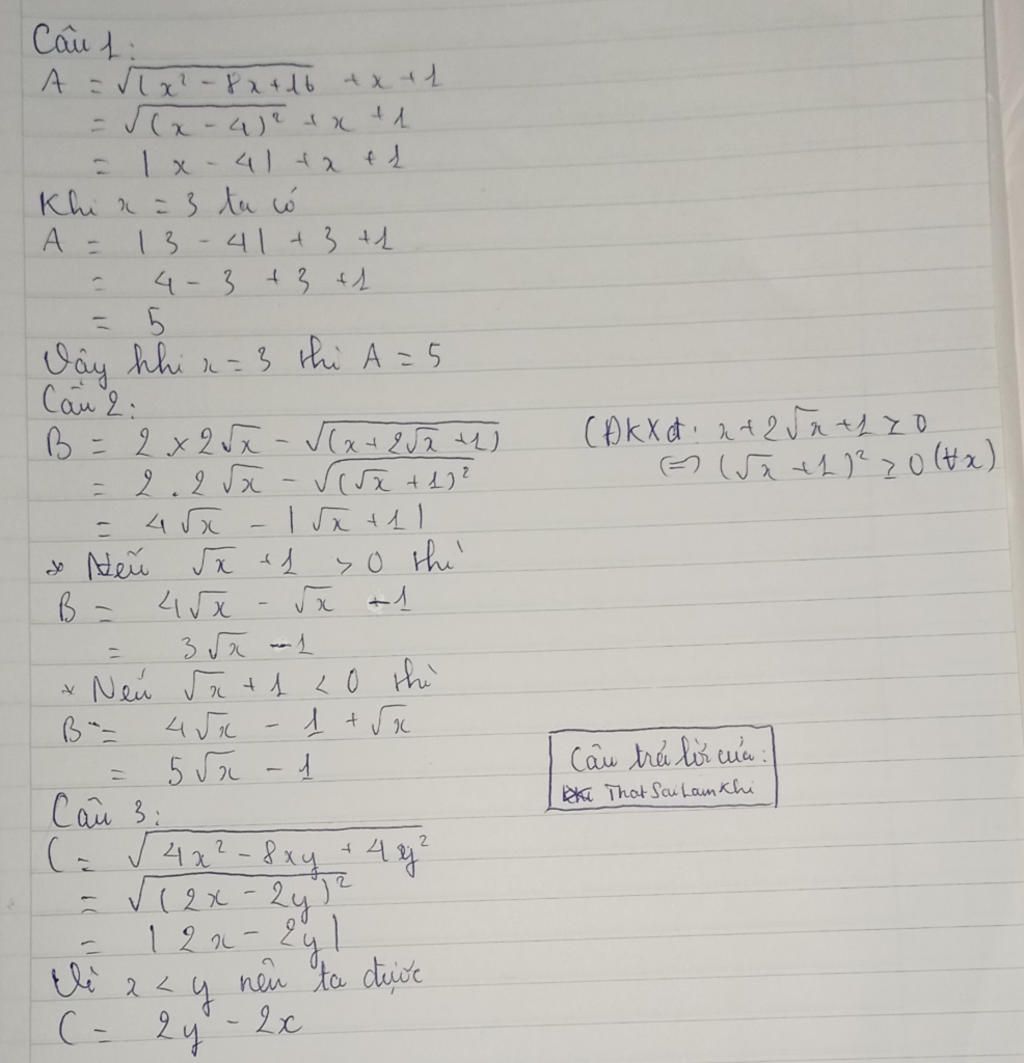 Câu 1:
A = √(x² - 8x + 16 + x + 1
= √(x - 4)² + x + 1
= |x - 4| + x + 1
Khi x = 3 ta có
A = |3 - 4| + 3 + 1
= 4 - 3 + 3 + 1
= 5
Vậy khi x = 3 thì A = 5
Câu 2:
B = 2 × 2√x - √(x + 2√x + 1)
(†)ĐKXĐ: x + 2√x + 1 ≥ 0
<=> (√x + 1)² ≥ 0 (∀x)
= 2 . 2√x - √(√x + 1)²
= 4√x - |√x + 1|
* Nếu √x + 1 > 0 thì
B = 4√x - √x - 1
= 3√x - 1
* Nếu √x + 1 < 0 thì
B = 4√x - 1 + √x
= 5√x - 1
Câu trả lời của:
ThatSauLamKhi
Câu 3:
C = √4x² - 8xy + 4y²
= √(2x - 2y)²
= |2x - 2y|
Vì x < y nên ta được
C = 2y - 2x